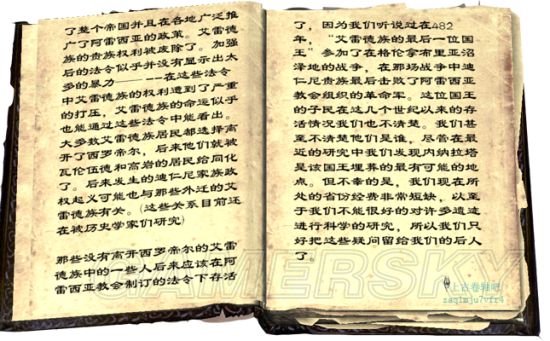 了整个帝国并且在各地广泛推
广了阿雷西亚的政策。艾雷德
族的贵族权利被废除了。加强
后的法令似乎并没有显示出太
多的暴力———-在这些法令
中艾雷德族的权利遭到了严重
的打压，艾雷德族的命运似乎
也能通过这些法令中能看出。
大多数艾雷德族居民都选择离
开了西罗帝尔，后来他们就被
瓦伦伍德和高岩的居民给同化
了。后来发生的迪仁尼家族政
权起义可能也与那些外迁的艾
雷德族有关。(这些关系目前还
在被历史学家们研究)
那些没有离开西罗帝尔的艾雷
德族中的一些人后来应该在阿
雷西亚教会制订的法令下存活
了，因为我们听说过在482
年，“艾雷德族的最后一位国
王”参加了在格伦拿布里亚沼
泽地的战争，在那场战争中迪
仁尼贵族最后击败了阿雷西亚
教会组织的革命军。这位国王
的子民在这几个世纪以来的存
活情况我们也不清楚。我们甚
至不清楚他们是谁，尽管在最
近的研究中我们发现内纳拉塔
是该国王埋葬的最有可能的地
点。但不幸的是，我们现在所
处的省份经费非常短缺，以至
于我们不能很好的对许多遗迹
进行科学的研究，所以我们只
好把这些疑问留给我们的后人
了。
上古卷轴吧
zaq1mju7vfr4
GAMERSKY